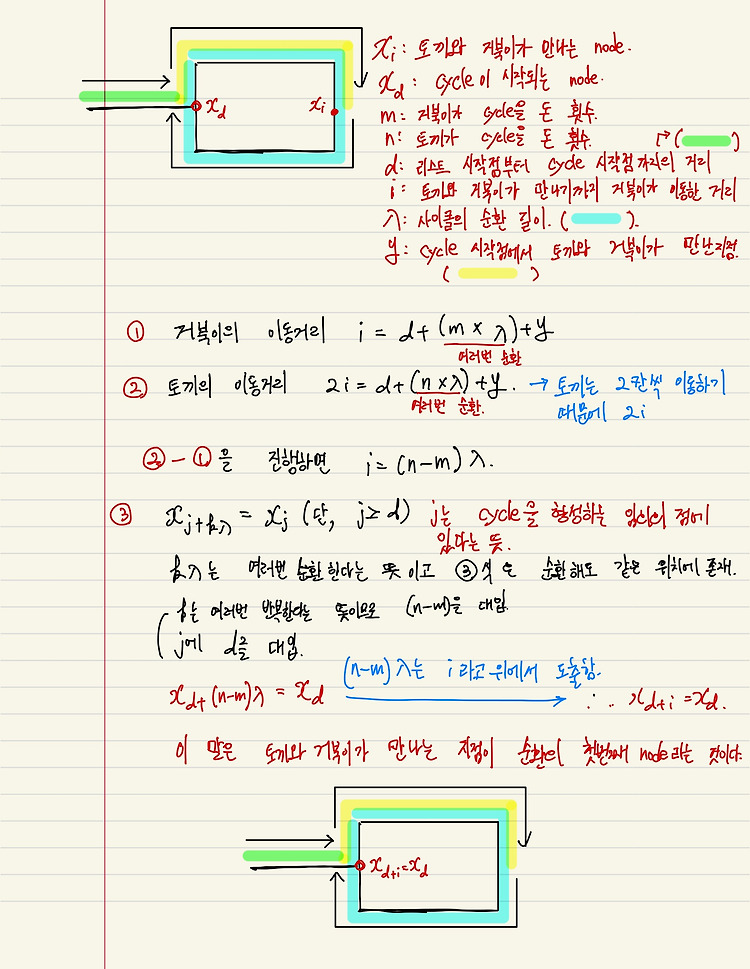 xᵢ: 토끼와 거북이가 만나는 node.
x_d: cycle이 시작되는 node.
m: 거북이가 cycle을 돈 횟수.
n: 토끼가 cycle을 돈 횟수.
d: 리스트 시작점부터 cycle 시작점까지의 거리
i: 토끼와 거북이가 만나기까지 거북이가 이동한 거리
λ: 사이클의 순환 길이. ( ).
y: cycle 시작점에서 토끼와 거북이가 만난지점.
( )
x_d
xᵢ
① 거북이의 이동거리 i = d + (m × λ) + y
여러번 순환
② 토끼의 이동거리 2i = d + (n × λ) + y. → 토끼는 2칸씩 이동하기
여러번 순환.
때문에 2i
② - ①을 진행하면 i = (n-m) λ.
③ x_{j+kλ} = x_j (단, j ≥ d) j는 cycle을 형성하는 임의의 점에
있다는 뜻.
kλ는 여러번 순환한다는 뜻이고 ③식은 순환해도 같은 위치에 존재.
k는 여러번 반복한다는 뜻이므로 (n-m)을 대입.
j에 d를 대입.
(n-m) λ는 i라고 위에서 도출함.
x_{d+(n-m)λ} = x_d → ∴ x_{d+i} = x_d.
이 말은 토끼와 거북이가 만나는 지점이 순환의 첫번째 node라는 것이다.
x_{d+i} = x_d